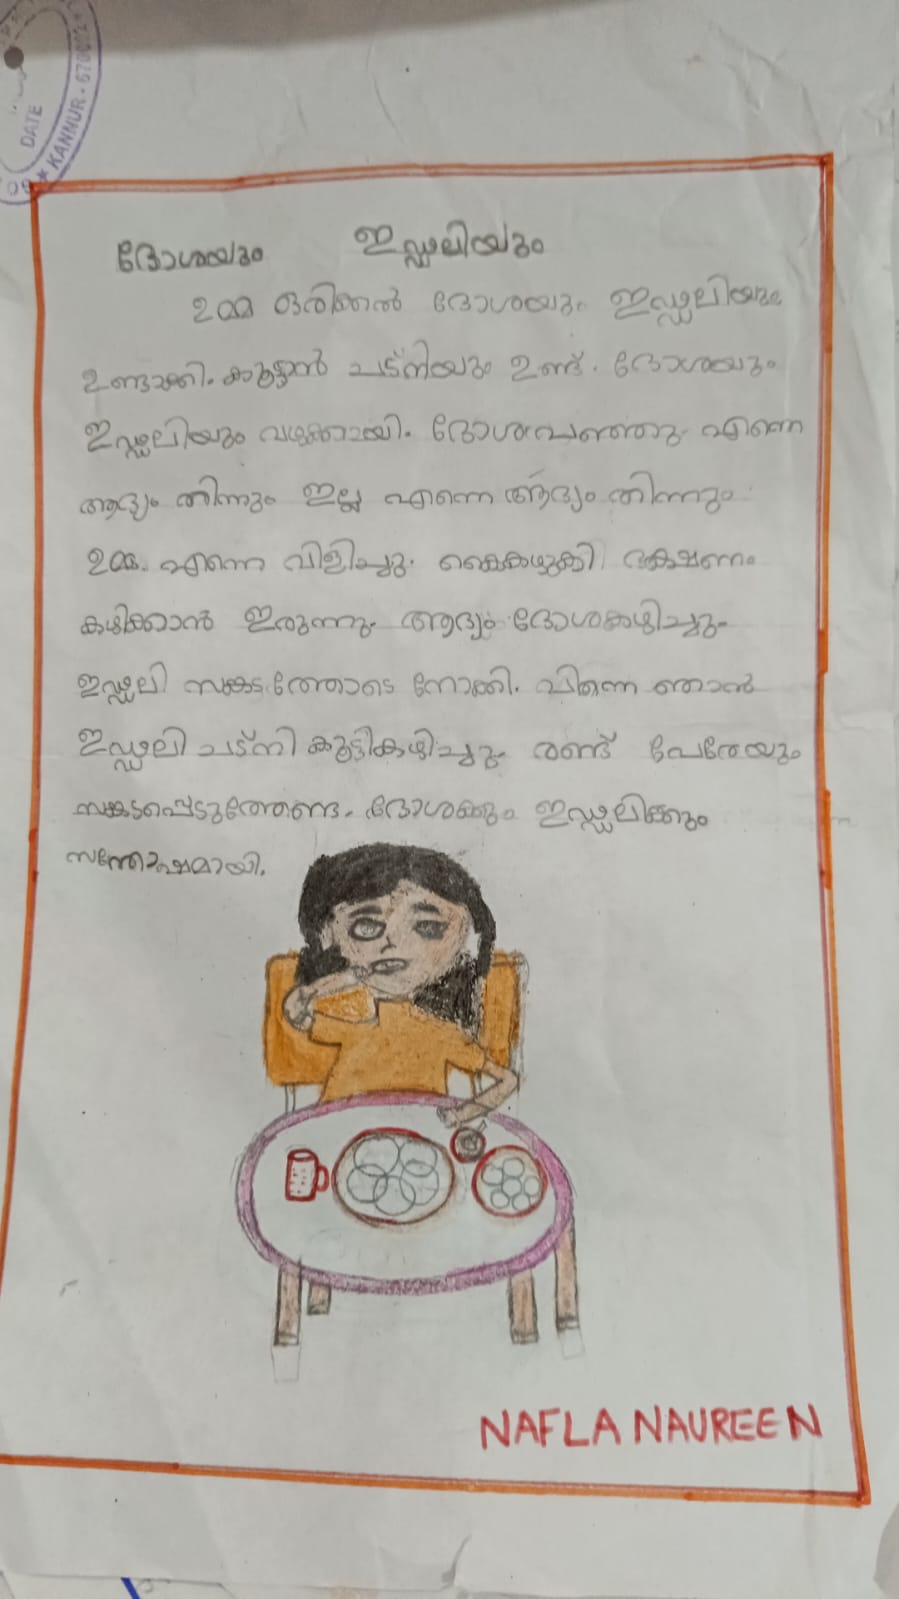 DATE
★ KANNUR - 670002 ★
ദോശയും ഇഡ്ഡലിയും
ഉമ്മ ഒരിക്കൽ ദോശയും ഇഡ്ഡലിയും
ഉണ്ടാക്കി. കൂട്ടാൻ ചട്നിയും ഉണ്ട്. ദോശയും
ഇഡ്ഡലിയും വഴക്കായി. ദോശപറഞ്ഞു എന്നെ
ആദ്യം തിന്നും ഇല്ല എന്നെ ആദ്യം തിന്നും
ഉമ്മ എന്നെ വിളിച്ചു. കൈകഴുകി ഭക്ഷണം
കഴിക്കാൻ ഇരുന്നു. ആദ്യം ദോശകഴിച്ചു.
ഇഡ്ഡലി സങ്കടത്തോടെ നോക്കി. പിന്നെ ഞാൻ
ഇഡ്ഡലി ചട്നി കൂട്ടികഴിച്ചു. രണ്ട് പേരേയും
സങ്കടപ്പെടുത്തേണ്ട. ദോശക്കും ഇഡ്ഡലിക്കും
സന്തോഷമായി.
NAFLA NAUREEN